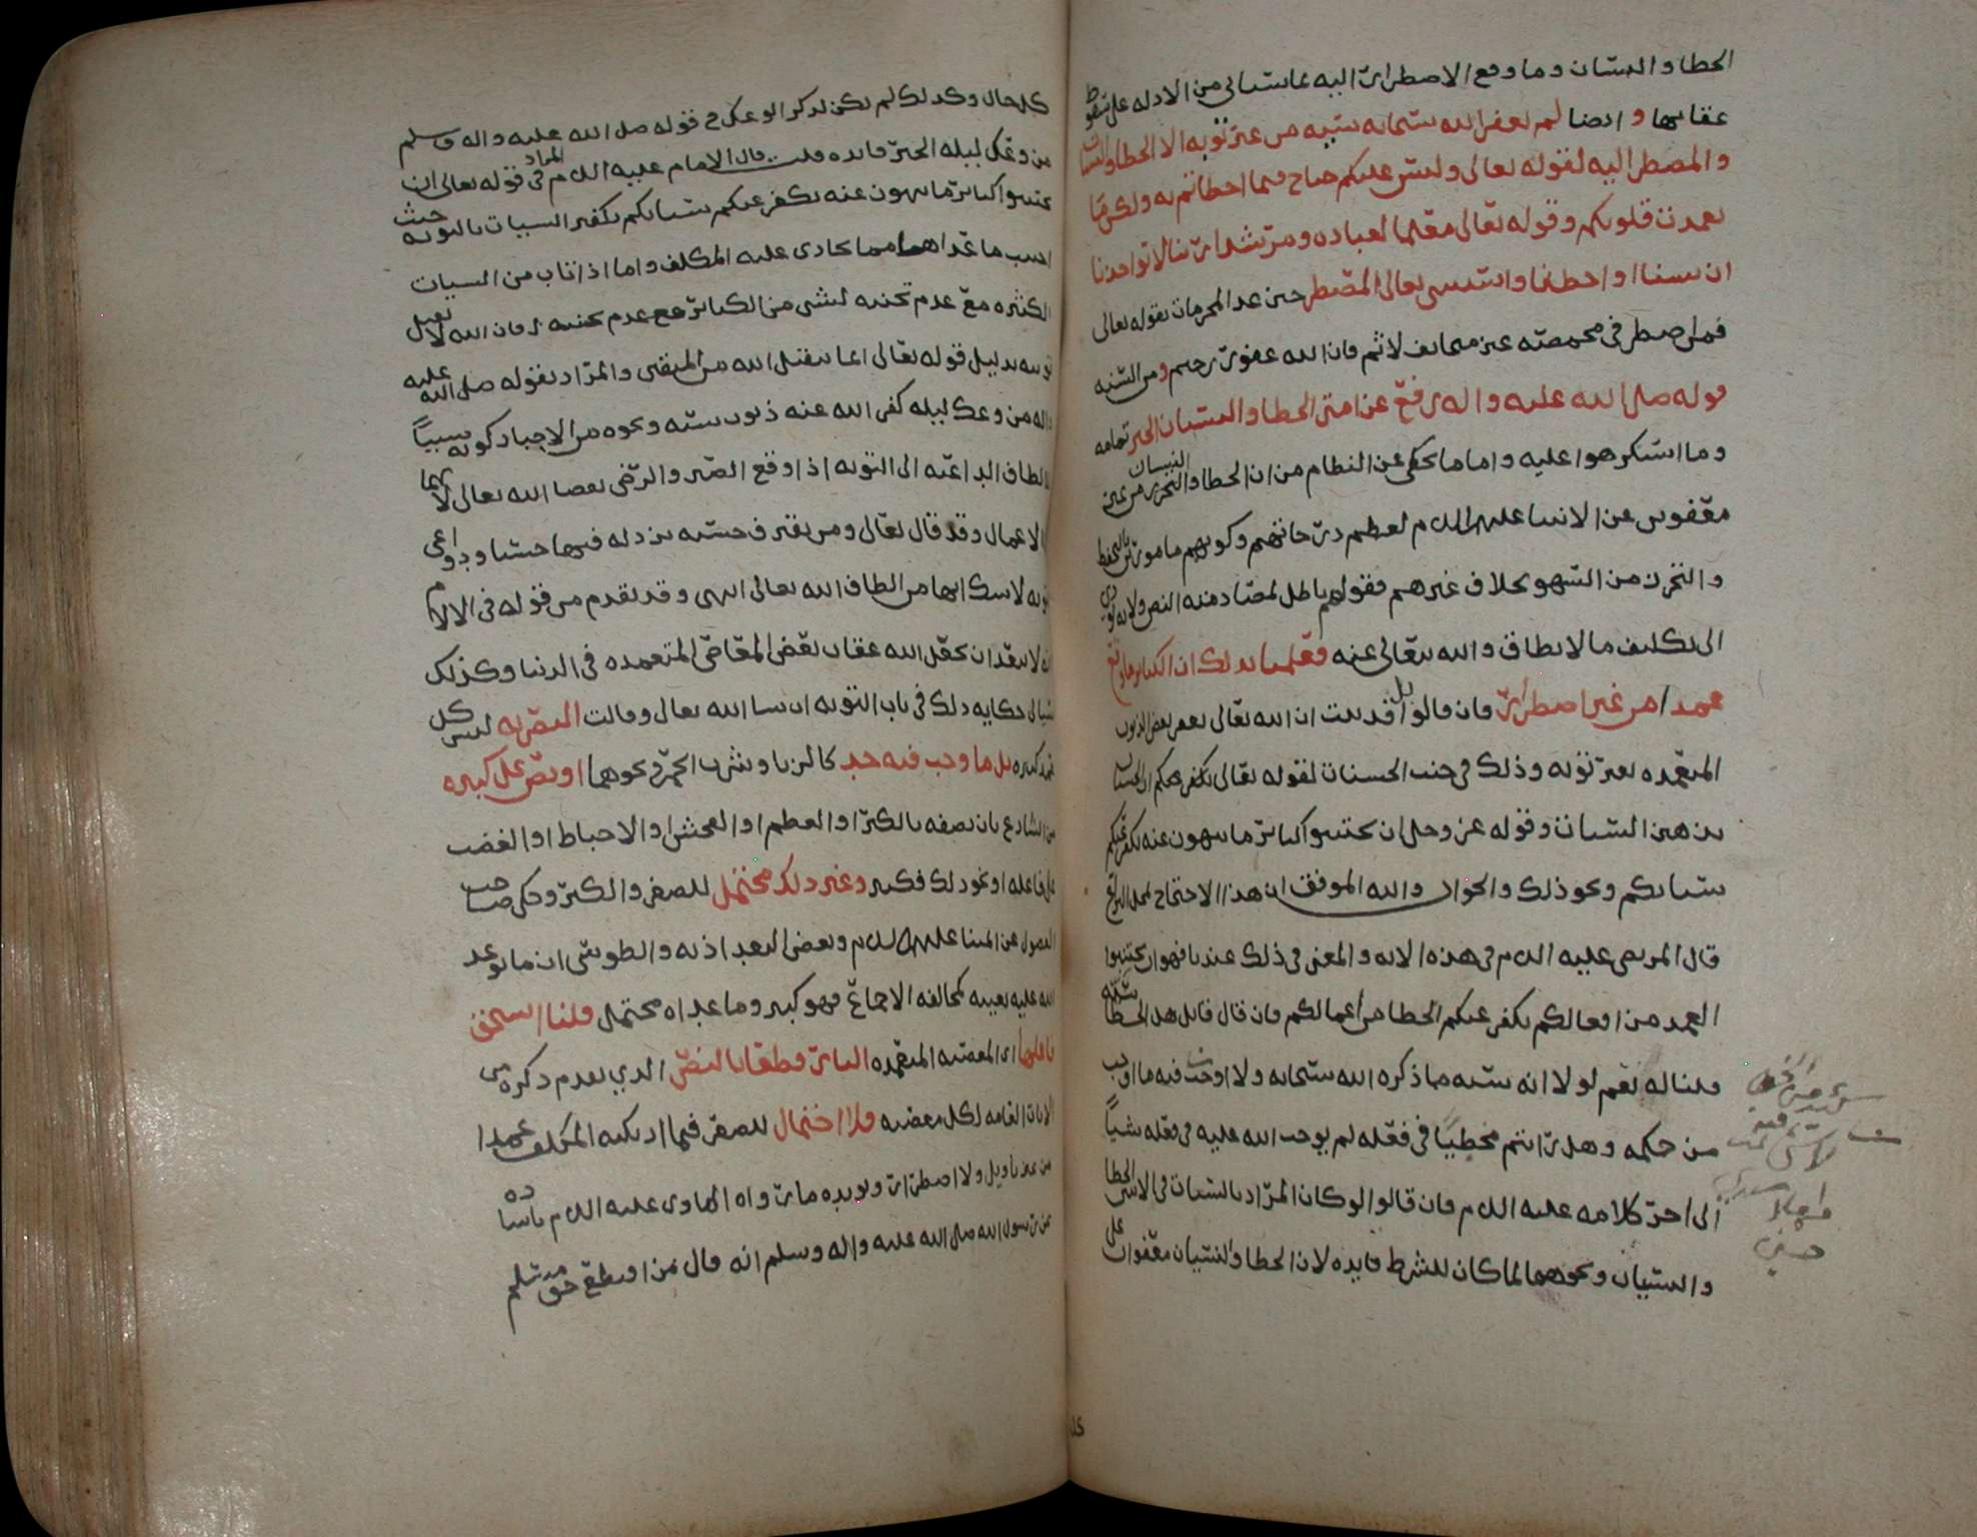 الخطا والنسيان وما وقع الاضطرار اليه بما سياتي من الادله على سقوط
عقابها و ايضا لم يغفر الله سبحانه سيئه من غير توبه الا الخطا والنسيان
والمضطر اليه لقوله تعالى وليس عليكم جناح فيما اخطاتم به ولكن ما
تعمدت قلوبكم وقوله تعالى معلما لعباده ومرشدا ربنا لا تواخذنا
ان نسينا او اخطانا واستثنى تعالى المضطر حين عد المحرمات بقوله تعالى
فمن اضطر في مخمصه غير متجانف لاثم فان الله غفور رحيم ومن السنه
قوله صلى الله عليه واله رفع عن امتي الخطا والنسيان الخبر تمامه
وما استكرهوا عليه واما ما يحكى عن النظام من ان الخطا والنسيان من غير
معفوين عن الانبيا عليهم السلام لعظم درجاتهم وكونهم مامورين بالتحفظ
والتحرز من السهو بخلاف غيرهم فقولهم باطل لمصادمته النص ولانه يودي
الى تكليف ما لا يطاق والله يتعالى عنه فعلمنا بذلك ان الكباير ما وقع
عمدا من غير اضطرار فان قالوا بل قد ثبت ان الله تعالى يغفر بعض الذنوب
المتعمده بغير توبه وذلك في جنب الحسنات لقوله تعالى ان الحسنات
يذهبن السيئات وقوله عز وجل ان تجتنبوا كبائر ما تنهون عنه نكفر عنكم
سيئاتكم ونحو ذلك والجواب والله الموفق ان هذا الاحتجاج
قال المرتضى عليه السلام في هذه الايه والمعنى في ذلك عندنا فهو ان تجتنبوا
العمد من افعالكم نكفر عنكم الخطا من اعمالكم فان قال قائل هل الخطا سيئه
قلنا له نعم لولا انه سيئه ما ذكره الله سبحانه ولا اوجب فيه ما اوجب
من حكمه وهل رايتم مخطيا في فعله لم يوجب الله عليه في فعله شيئا
الى اخر كلامه عليه السلام فان قالوا لو كان المراد بالسيئات في الايتين الخطا
والنسيان ونحوهما لما كان للشرط فايده لان الخطا والنسيان معفوان على
كل حال وكذلك لم يكن لذكر الوعك في قوله صلى الله عليه واله وسلم
من وعك ليله الخبر فايده قلت قال الامام عليه السلام المراد في قوله تعالى ان
تجتنبوا كبائر ما تنهون عنه نكفر عنكم سيئاتكم تكفير السيئات بالتوبه حيث
اجتنب ما عداها مما يجازى عليه المكلف واما اذا تاب من السيئات
الكثيره مع عدم تجنبه لشي من الكبائر فمع عدم تجنبه فان الله لا يقبل
توبته بدليل قوله تعالى انما يتقبل الله من المتقين والمراد بقوله صلى الله عليه
واله من وعك ليله كفر الله عنه ذنوب سنه ونحوه من الاخبار كونه سببا
للالطاف الداعيه الى التوبه اذا وقع الصبر والرضى بقضا الله تعالى لانهما
الاعمال وقد قال تعالى ومن يقترف حسنه نزد له فيها حسنا ودواعي
التوبه لا شك انها من الطاف الله تعالى انتهى وقد تقدم من قوله في الالام
انه لا يبعد ان يجعل الله عقاب بعض المعاصي المتعمده في الدنيا وكذلك
سياتي حكايه ذلك في باب التوبه ان شا الله تعالى وقالت البصريه ليس كل
عمد كبيره بل ما وجب فيه حد كالزنا وشرب الخمر ونحوهما او نص على كبيره
من الشارع بان يصفه بالكبر او العظم او الفحش او الاحباط او الغضب
على فاعله او نحو ذلك فكبير وغير ذلك محتمل للصغر والكبر وحكى صاحب
الفصول عن ايمتنا عليهم السلام وبعض البغداذيه والطوسي ان ما توعد
الله عليه بعينه كمخالفه الاجماع فهو كبير وما عداه محتمل قلنا استحق
فاعلها اي المعصيه المتعمده النار قطعا بالنص الذي تقدم ذكره من
الايات العامه لكل معصيه فلا احتمال للصغر فيما ارتكبه المكلف عمدا
من غير تاويل ولا اضطرار ويويده ما رواه الهادي عليه السلام باسناده
عن رسول الله صلى الله عليه واله وسلم انه قال من اقتطع حق مسلم